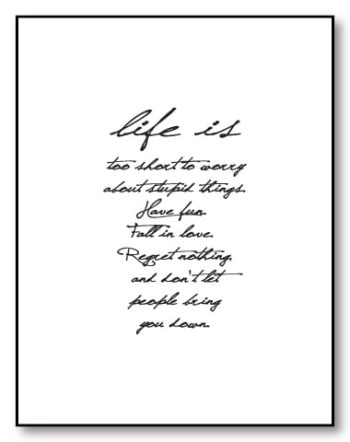 life is
too short to worry
about stupid things.
Have fun.
Fall in love.
Regret nothing,
and don't let
people bring
you down.